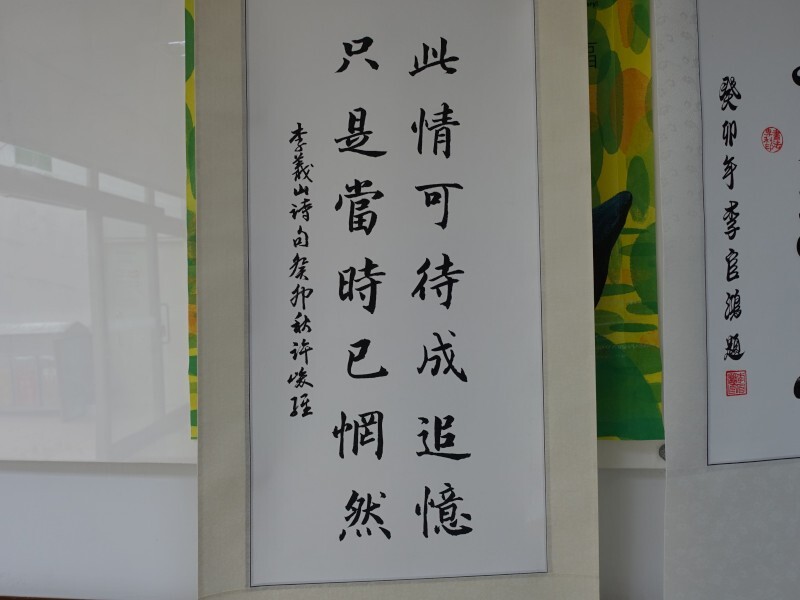 此情可待成追憶
只是當時已惘然
李義山詩句癸卯秋許峻經
癸卯年李官鴻題
福